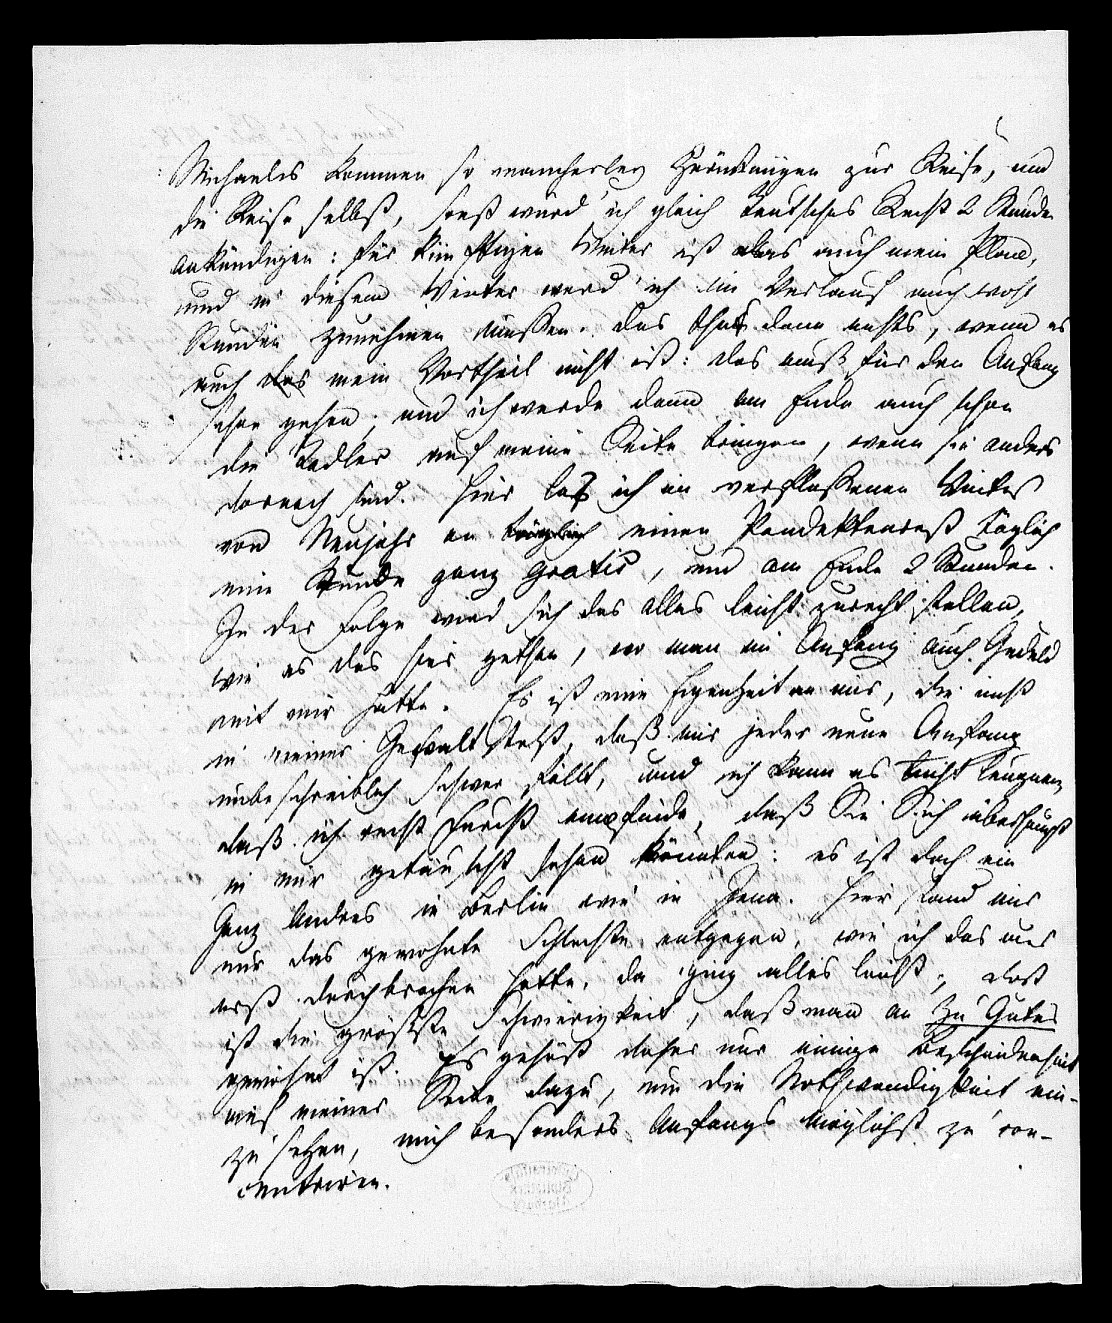 Michaelis kommen so mancherley Störungen zur Reise, und
die Reise selbst, sonst würd ich gleich teutsches Recht 2 Stunden
ankündigen: für künftigen Winter ist das auch mein Plan,
und in diesem Winter werd ich im Verlauf auch wohl
Stunden zunehmen müssen. das thut dann nichts, wenn es
auch das mein Vortheil nicht ist: das muß für den Anfang
schon gehen; und ich werde dann am Ende auch schon
die auf meine Seite bringen, wenn sie anders
darnach sind. Hier las ich im verflossenen Winter
von Neujahr an einen Pandektenrest täglich
eine Stunde ganz gratis, und am Ende 2 Stunden.
In der Folge wird sich das alles leicht zurecht stellen,
wie es das hier gethan, wo man im Anfang auch Geduld
mit mir hatte. Es ist eine Eigenheit an mir, die nicht
in meiner Gewalt steht, daß mir jeder neue Anfang
unbeschreiblich schwer fällt, und ich kann es nicht leugnen,
daß ich recht Furcht empfinde, daß Sie Sich überhaupt
in mir getäuscht sehen könnten: es ist doch ein
Ganz Andres in Berlin wie in Jena. Hier stand mir
nur das gewohnte Schlechte entgegen, wie ich das nur
erst durchbrochen hatte, da ging alles leicht; dort
ist die größte Schwierigkeit, daß man an zu Gutes
gewöhnt ist. Es gehört daher nur einige Bescheidenheit
auf meiner Seite dazu, um die Nothwendigkeit ein-
zusehen, mich besonders Anfangs möglichst zu con-
centriren.